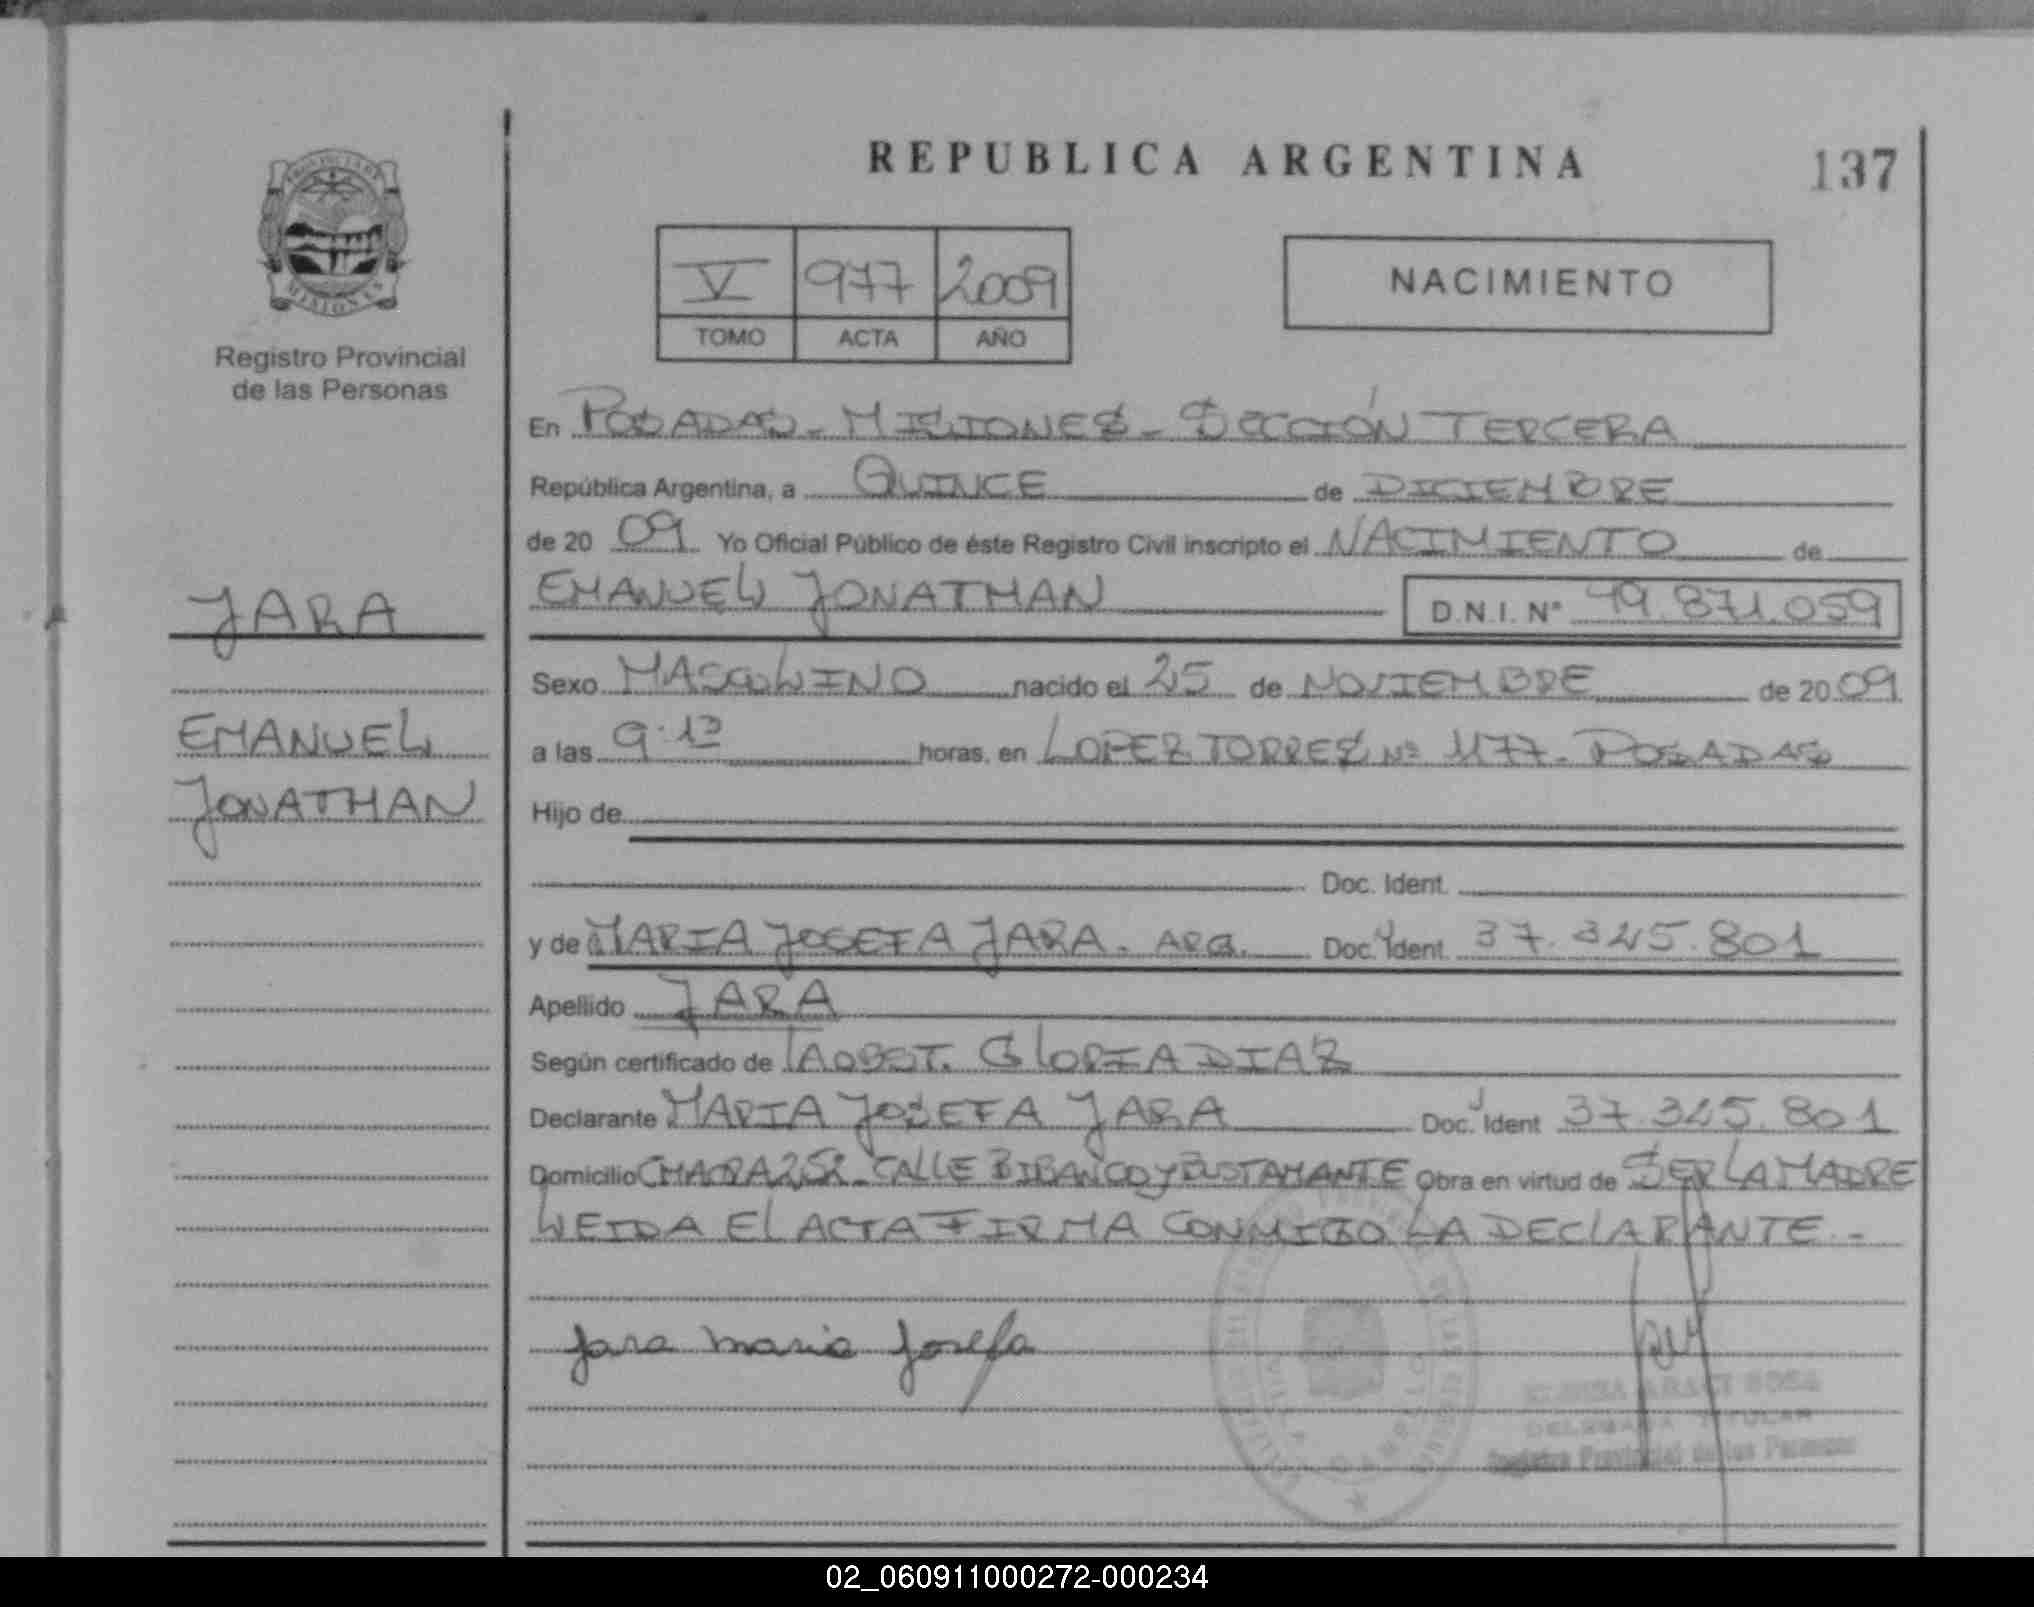 REPUBLICA ARGENTINA
137
PROVINCIA DE MISIONES
Registro Provincial
de las Personas
V 977 2009
TOMO ACTA AÑO
NACIMIENTO
En POSADAS - MISIONES - SECCIÓN TERCERA
República Argentina, a QUINCE de DICIEMBRE
de 20 09 Yo Oficial Público de éste Registro Civil inscripto el NACIMIENTO de
JARA
EMANUEL JONATHAN D.N.I. Nº 49.871.059
Sexo MASCULINO nacido el 25 de NOVIEMBRE de 20 09
EMANUEL
a las 9:13 horas, en LOPEZ TORRES Nº 1177 - POSADAS
JONATHAN
Hijo de
Doc. Ident.
y de MARIA JOSEFA JARA. ARG. Doc. Ident. 37.345.801
Apellido JARA
Según certificado de LA OBST. GLORIA DIAZ
Declarante MARIA JOSEFA JARA Doc. Ident 37.345.801
Domicilio CHACRA 252 - CALLE BIBANCO y BUSTAMANTE Obra en virtud de SER LA MADRE
LEIDA EL ACTA FIRMA CONMIGO LA DECLARANTE -
Jara Maria Josefa
ARACI SOSA
DELEGADA TITULAR
Registro Provincial de las Personas
02_060911000272-000234